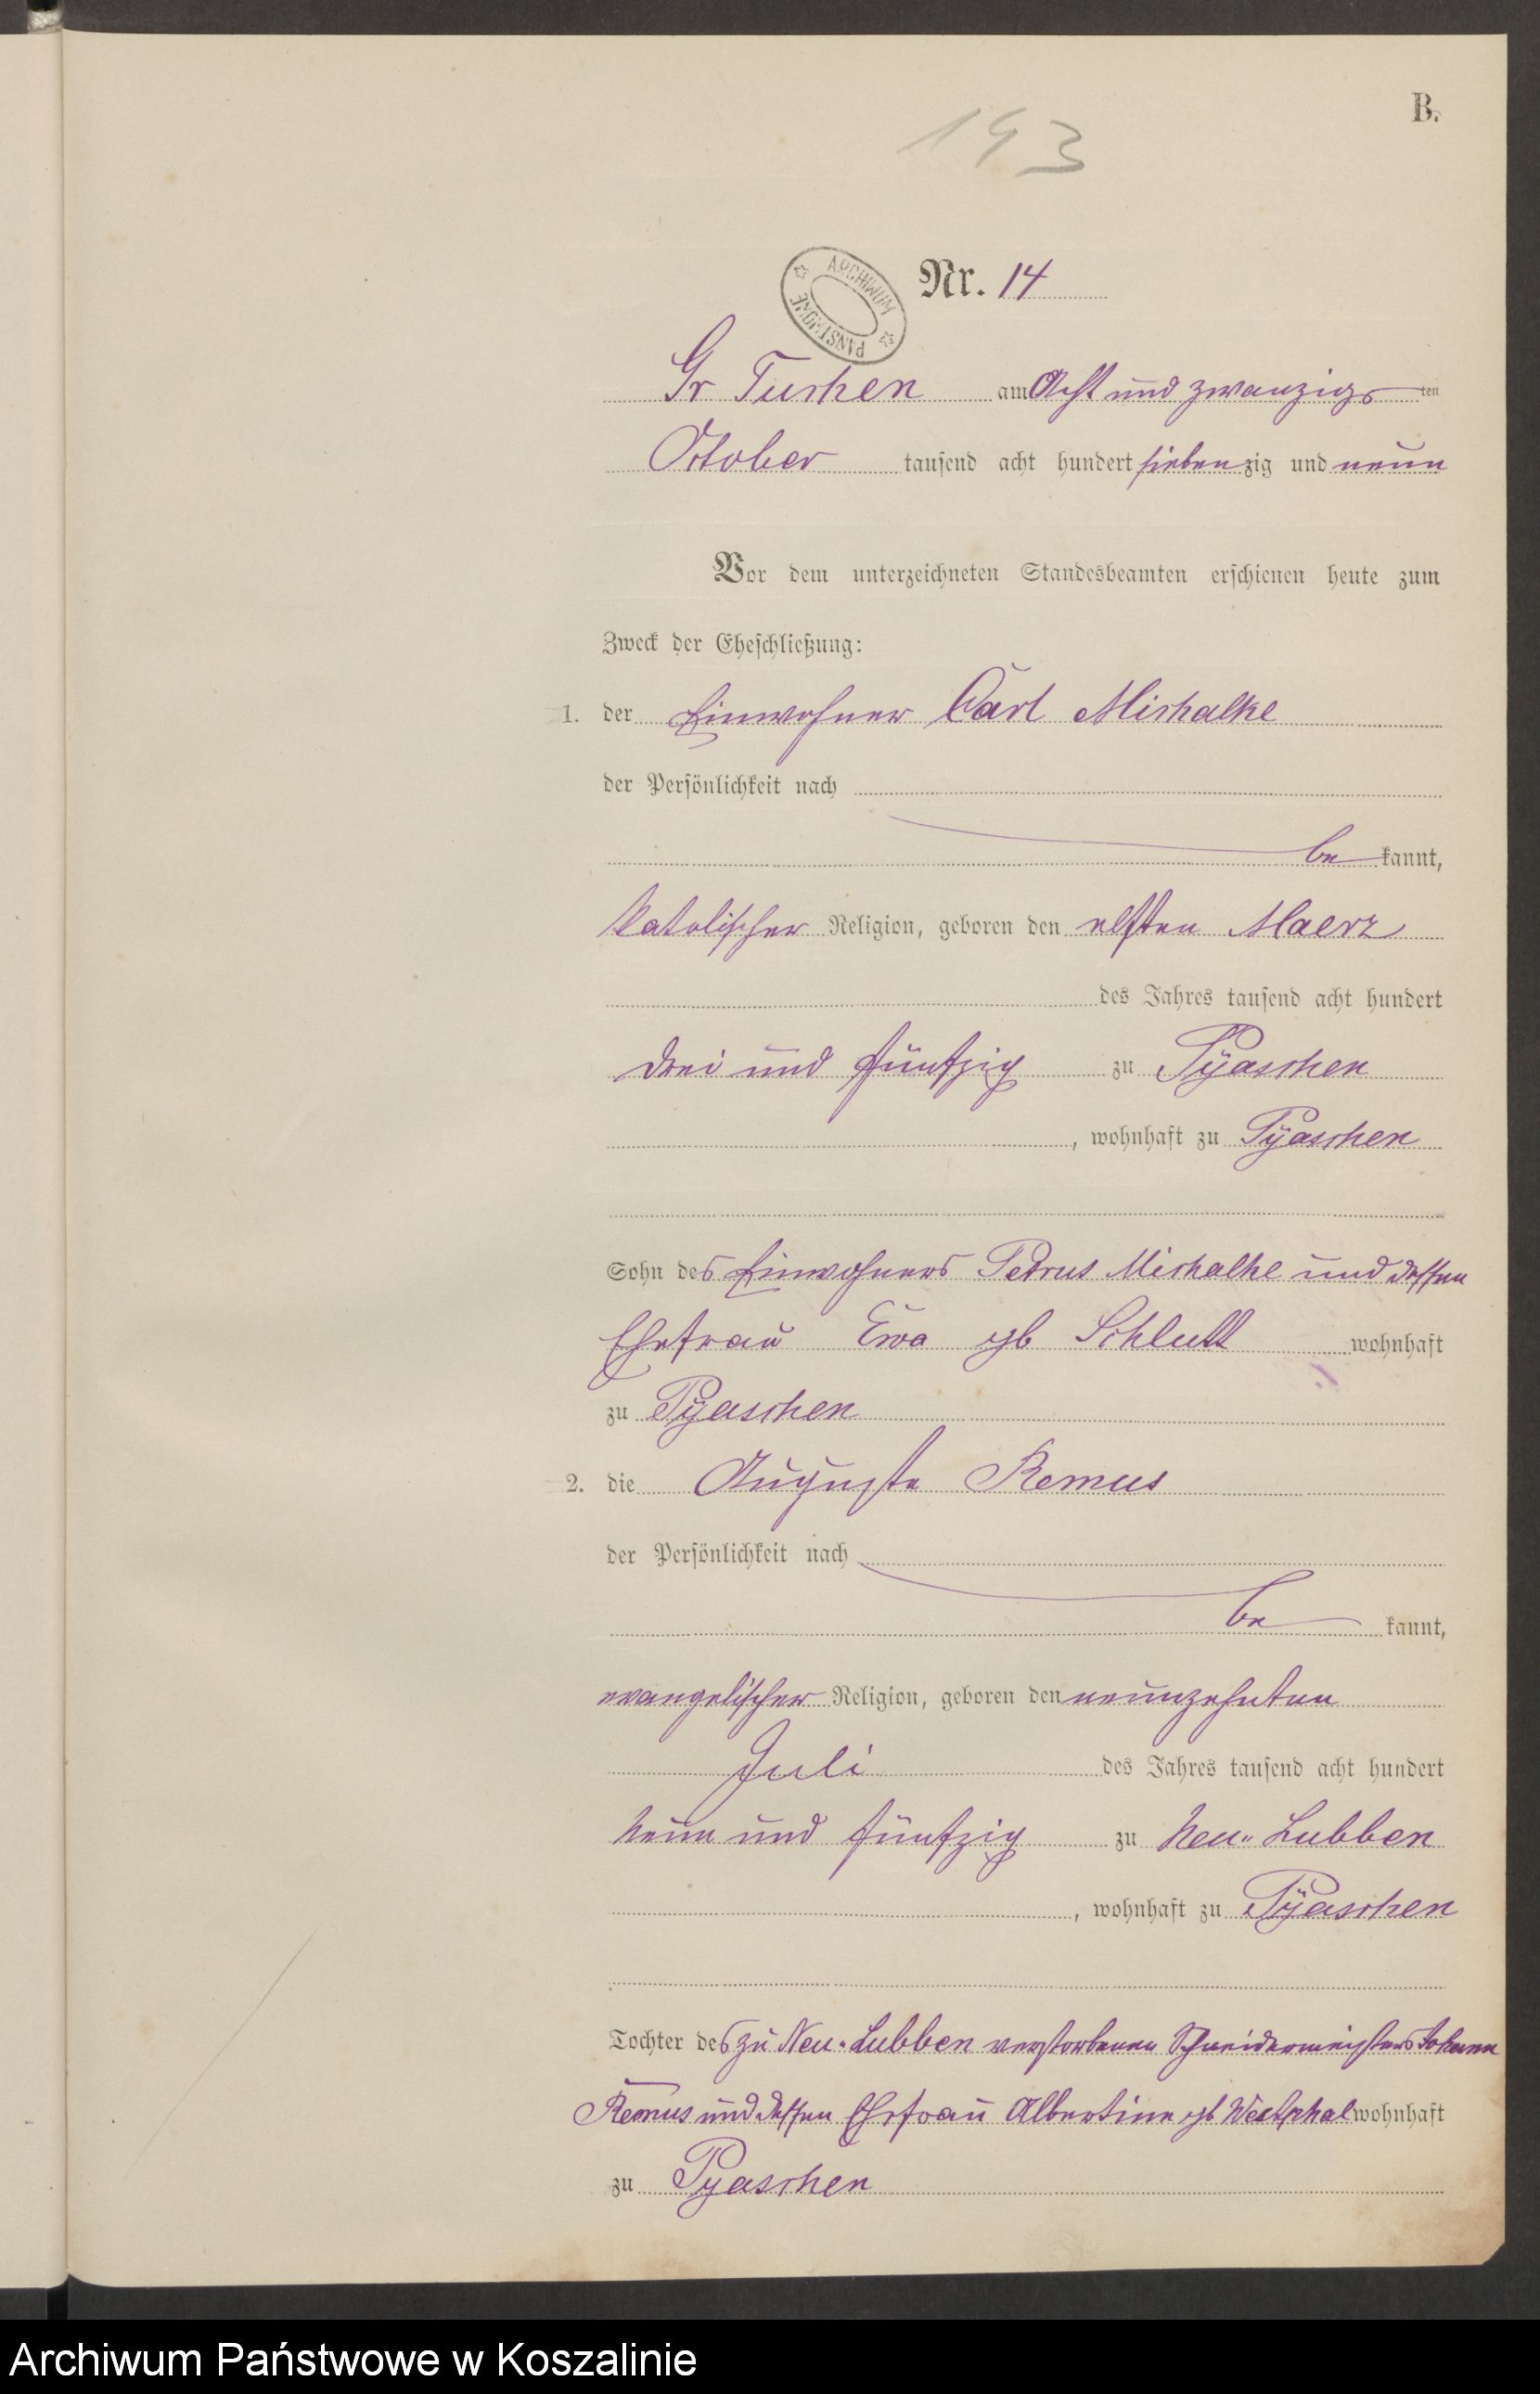 B.
193
ARCHIWUM PAŃSTWOWE
Nr. 14
Gr Tuchen am Acht und zwanzigsten
October tausend acht hundert siebenzig und neun
Vor dem unterzeichneten Standesbeamten erschienen heute zum
Zweck der Eheschließung:
1. der Einwohner Carl Mischalke
der Persönlichkeit nach
be kannt,
katolischer Religion, geboren den elften Maerz
des Jahres tausend acht hundert
drei und fünfzig zu Pyaschen
, wohnhaft zu Pyaschen
Sohn des Einwohners Petrus Mischalke und dessen
Ehefrau Ewa gb Schlutt wohnhaft
zu Pyaschen
2. die Auguste Remus
der Persönlichkeit nach
be kannt,
evangelischer Religion, geboren den neunzehnten
Juli des Jahres tausend acht hundert
neun und fünfzig zu Neu-Lubben
, wohnhaft zu Pyaschen
Tochter des zu Neu-Lubben verstorbenen Schneidermeisters Johann
Remus und dessen Ehefrau Albertine gb Westphal wohnhaft
zu Pyaschen
Archiwum Państwowe w Koszalinie